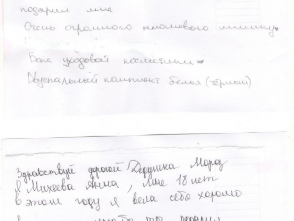 подарил мне
Очень огромного плюшевого мишку
Бокс уходовой косметики
Кружевной комплект белья (чёрный)
Здравствуй дорогой Дедушка Мороз
Я Михеева Янна, мне 18 лет
в этом году я вела себя хорошо